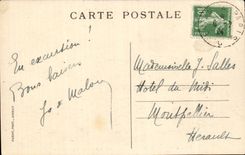 CARTE POSTALE
En excursion !
Bons baisers
Mademoiselle J. Salles
Hotel du Midi
Montpellier
Hérault